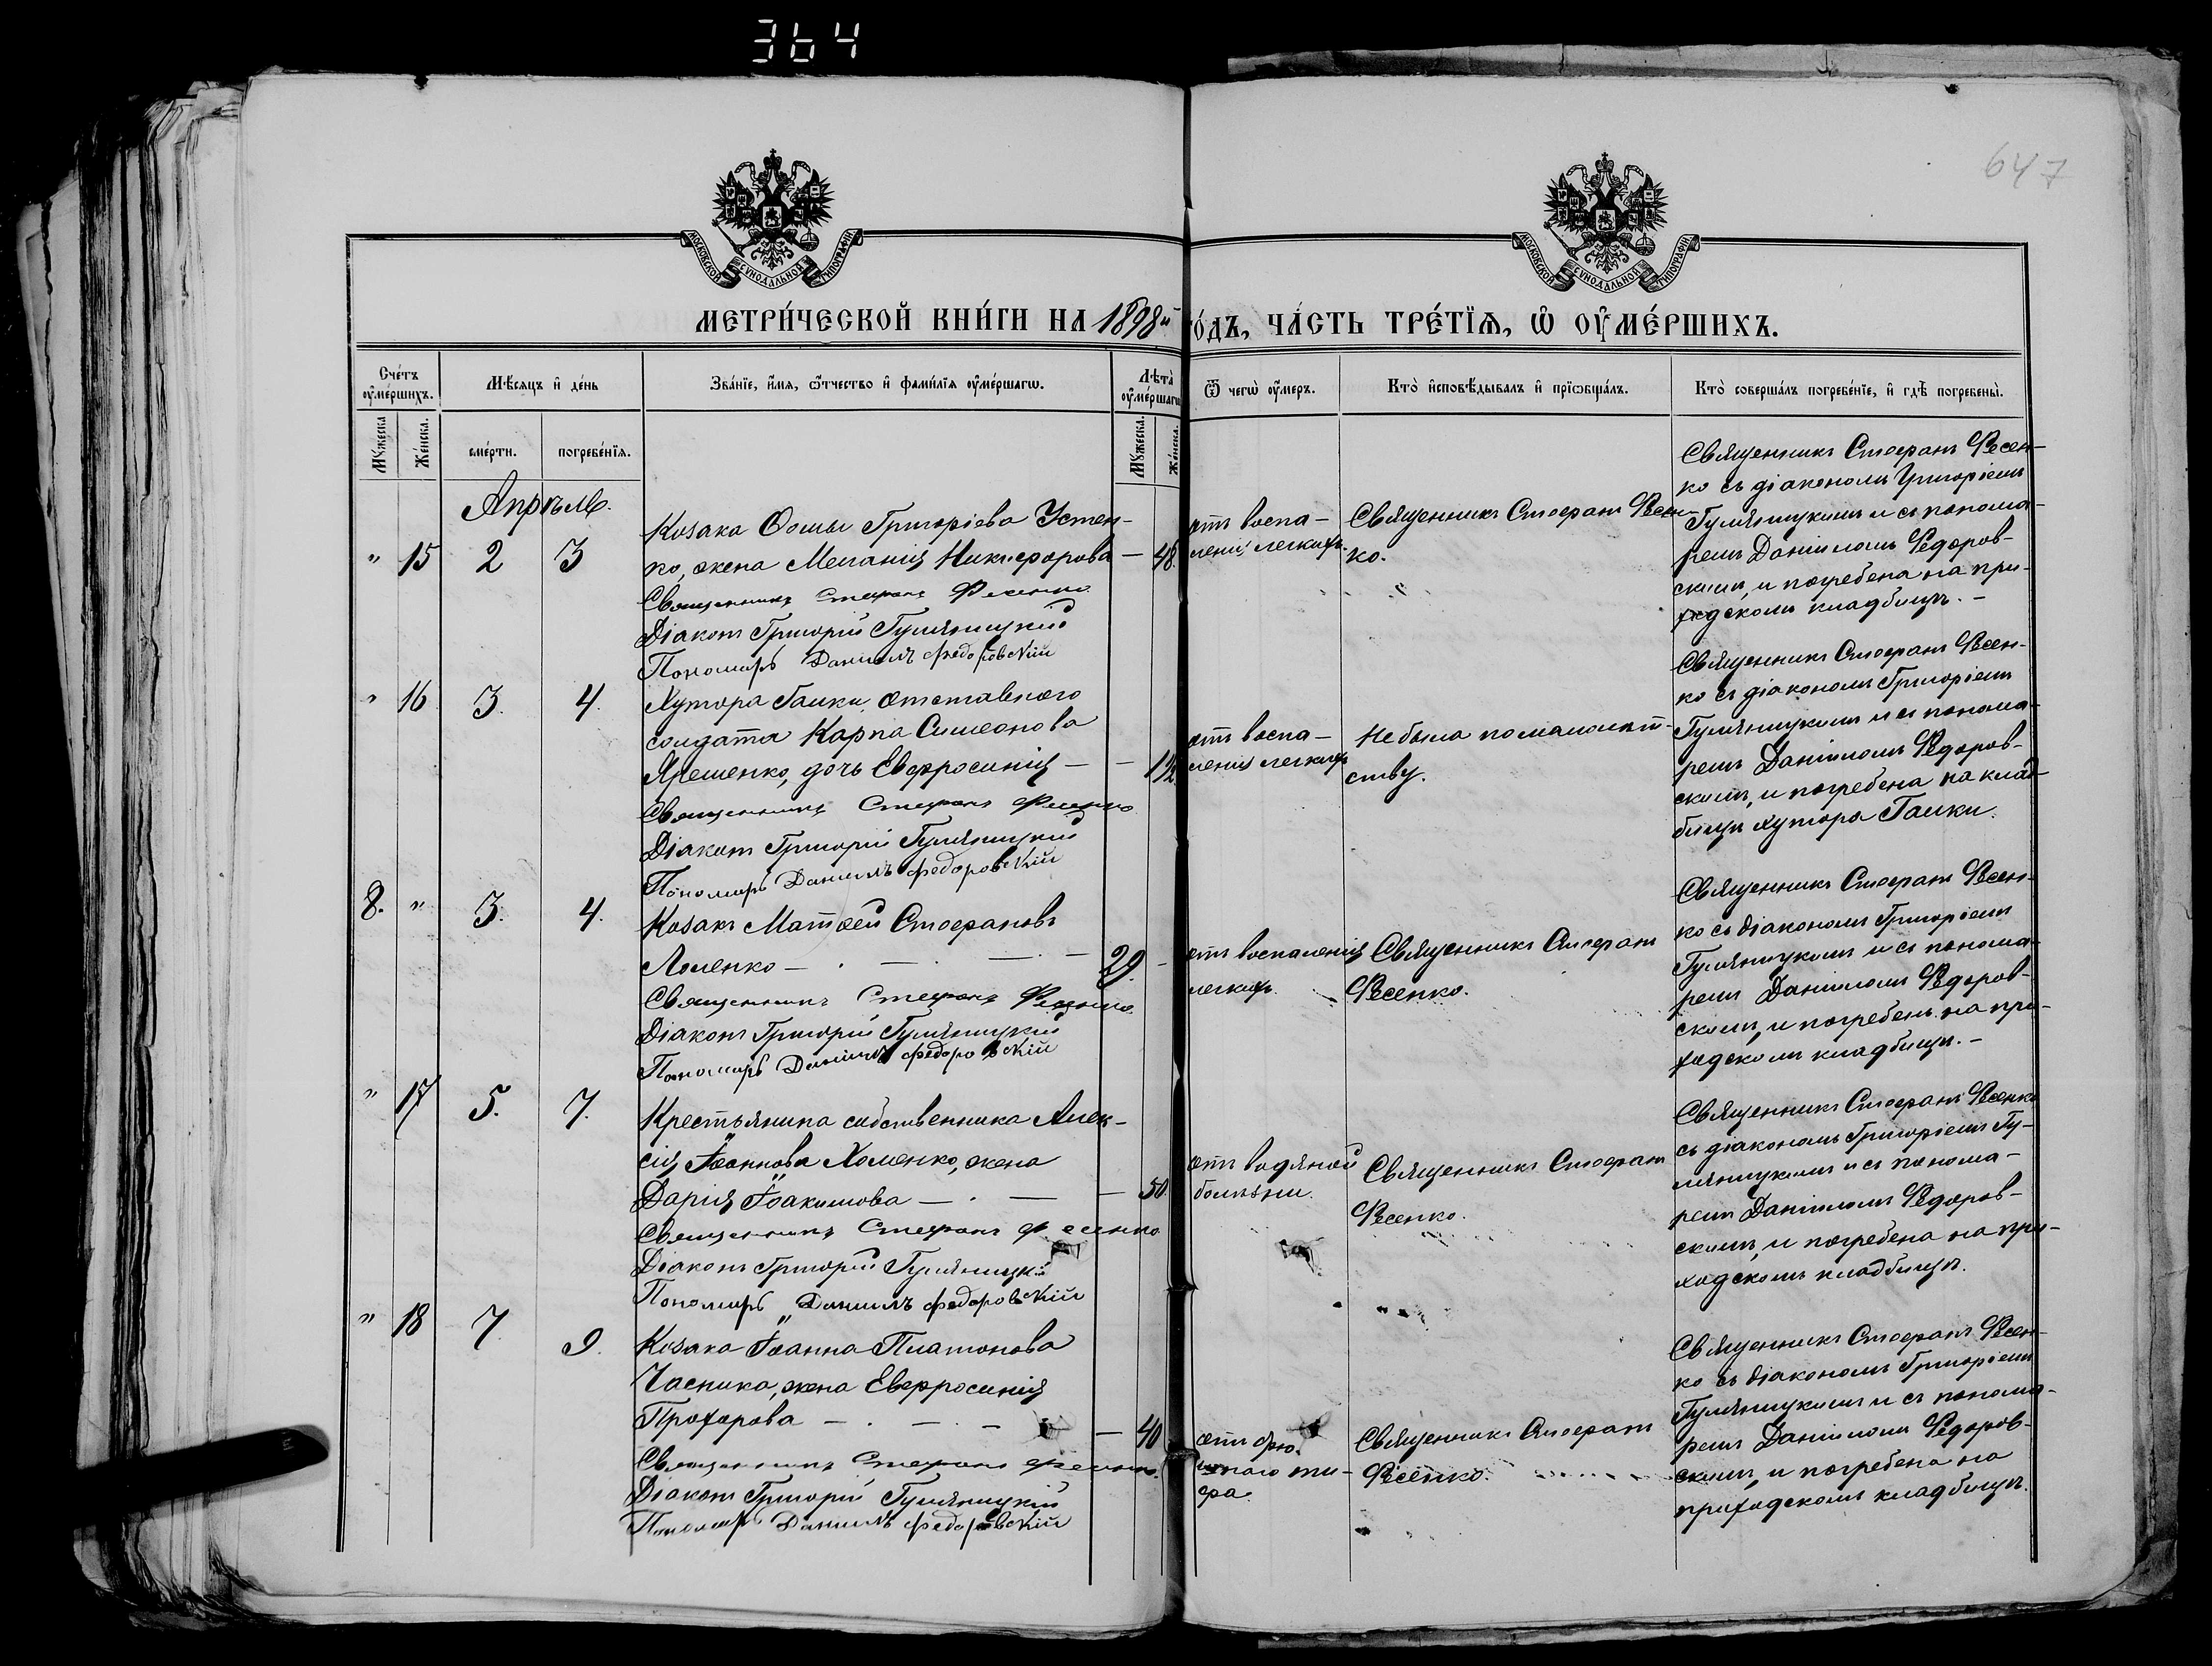 364
647
МОСКОВСКОЙ СУНОДАЛЬНОЙ ТИПОГРАФІИ
МОСКОВСКОЙ СУНОДАЛЬНОЙ ТИПОГРАФІИ
МЕТРИ́ЧЕСКОЙ КНИ́ГИ НА 1898й го́дъ, ЧА́СТЬ ТРЕ́ТЇѦ, Ѡ҆ ОУ҆МЕ́РШИХЪ.
Сче́тъ оу҆ме́ршихъ.
Мѣ́сяцъ и҆ де́нь
Зва́нїе, и҆́мя, ѻ҆́тчество и҆ фами́лїя оу҆ме́ршагѡ.
Лѣта̀ оу҆ме́ршагѡ
Ѿ чегѡ̀ оу҆́меръ.
Кто̀ и҆сповѣ́дывалъ и҆ прїѡбща́лъ.
Кто̀ соверша́лъ погребе́нїе, и҆ гдѣ̀ погребены̀.
Мꙋ́жеска
Же́нска.
сме́рти.
погребе́нїя.
Мꙋ́жеска.
Же́нска.
Апрѣль.
" 15 2 3
Козака Ѳомы Григоріева Устен-
ко, жена Меланія Никифорова — 48.
Священникъ Стефанъ Фесенко
Діаконъ Григорій Гуляницкій
Пономарь Даніилъ Федоровскій
отъ воспа-
ленія легкихъ.
Священникъ Стефанъ Фесен-
ко.
Священникъ Стефанъ Фесен-
ко съ діакономъ Григоріемъ
Гуляницкимъ и съ понома-
ремъ Даніиломъ Федоров-
скимъ, и погребена на при-
ходскомъ кладбищѣ. -
" 16 3. 4.
Хутора Галки, отставного
солдата Карпа Симеонова
Ярешенко, дочь Евфросинія — — 1½
Священникъ Стефанъ Фесенко
Діаконъ Григорій Гуляницкій
Пономарь Даніилъ Федоровскій
отъ воспа-
ленія легкихъ
Не была по малолѣт-
ству.
Священникъ Стефанъ Фесен-
ко съ діакономъ Григоріемъ
Гуляницкимъ и съ понома-
ремъ Даніиломъ Федоров-
скимъ, и погребена на клад-
бищѣ хутора Галки.
8. " 3. 4.
Козакъ Матѳей Стефановъ
Ломенко — . — . — . — 29. -
Священникъ Стефанъ Фесенко
Діаконъ Григорій Гуляницкій
Пономарь Даніилъ Федоровскій
отъ воспаленія
легкихъ.
Священникъ Стефанъ
Фесенко.
Священникъ Стефанъ Фесен-
ко съ діакономъ Григоріемъ
Гуляницкимъ и съ понома-
ремъ Даніиломъ Федоров-
скимъ, и погребенъ на при-
ходскомъ кладбищѣ. -
" 17 5. 7.
Крестьянина собственника Алек-
сія Іоаннова Хоменко, жена
Дарія Іоакимова — . — — 50.
Священникъ Стефанъ Фесенко
Діаконъ Григорій Гуляницкій
Пономарь Даніилъ Федоровскій
отъ водяной
болѣзни.
Священникъ Стефанъ
Фесенко.
Священникъ Стефанъ Фесенко
съ діакономъ Григоріемъ Гу-
ляницкимъ и съ понома-
ремъ Даніиломъ Федоров-
скимъ, и погребена на при-
ходскомъ кладбищѣ.
" 18 7 9.
Козака Іоанна Платонова
Часника, жена Евфросинія
Прохорова — . — . — — 40
Священникъ Стефанъ Фесенко.
Діаконъ Григорій Гуляницкій
Пономарь Даніилъ Федоровскій
отъ брю-
шнаго ти-
фа.
Священникъ Стефанъ
Фесенко.
Священникъ Стефанъ Фесен-
ко съ діакономъ Григоріемъ
Гуляницкимъ и съ понома-
ремъ Даніиломъ Федоров-
скимъ, и погребена на
приходскомъ кладбищѣ.